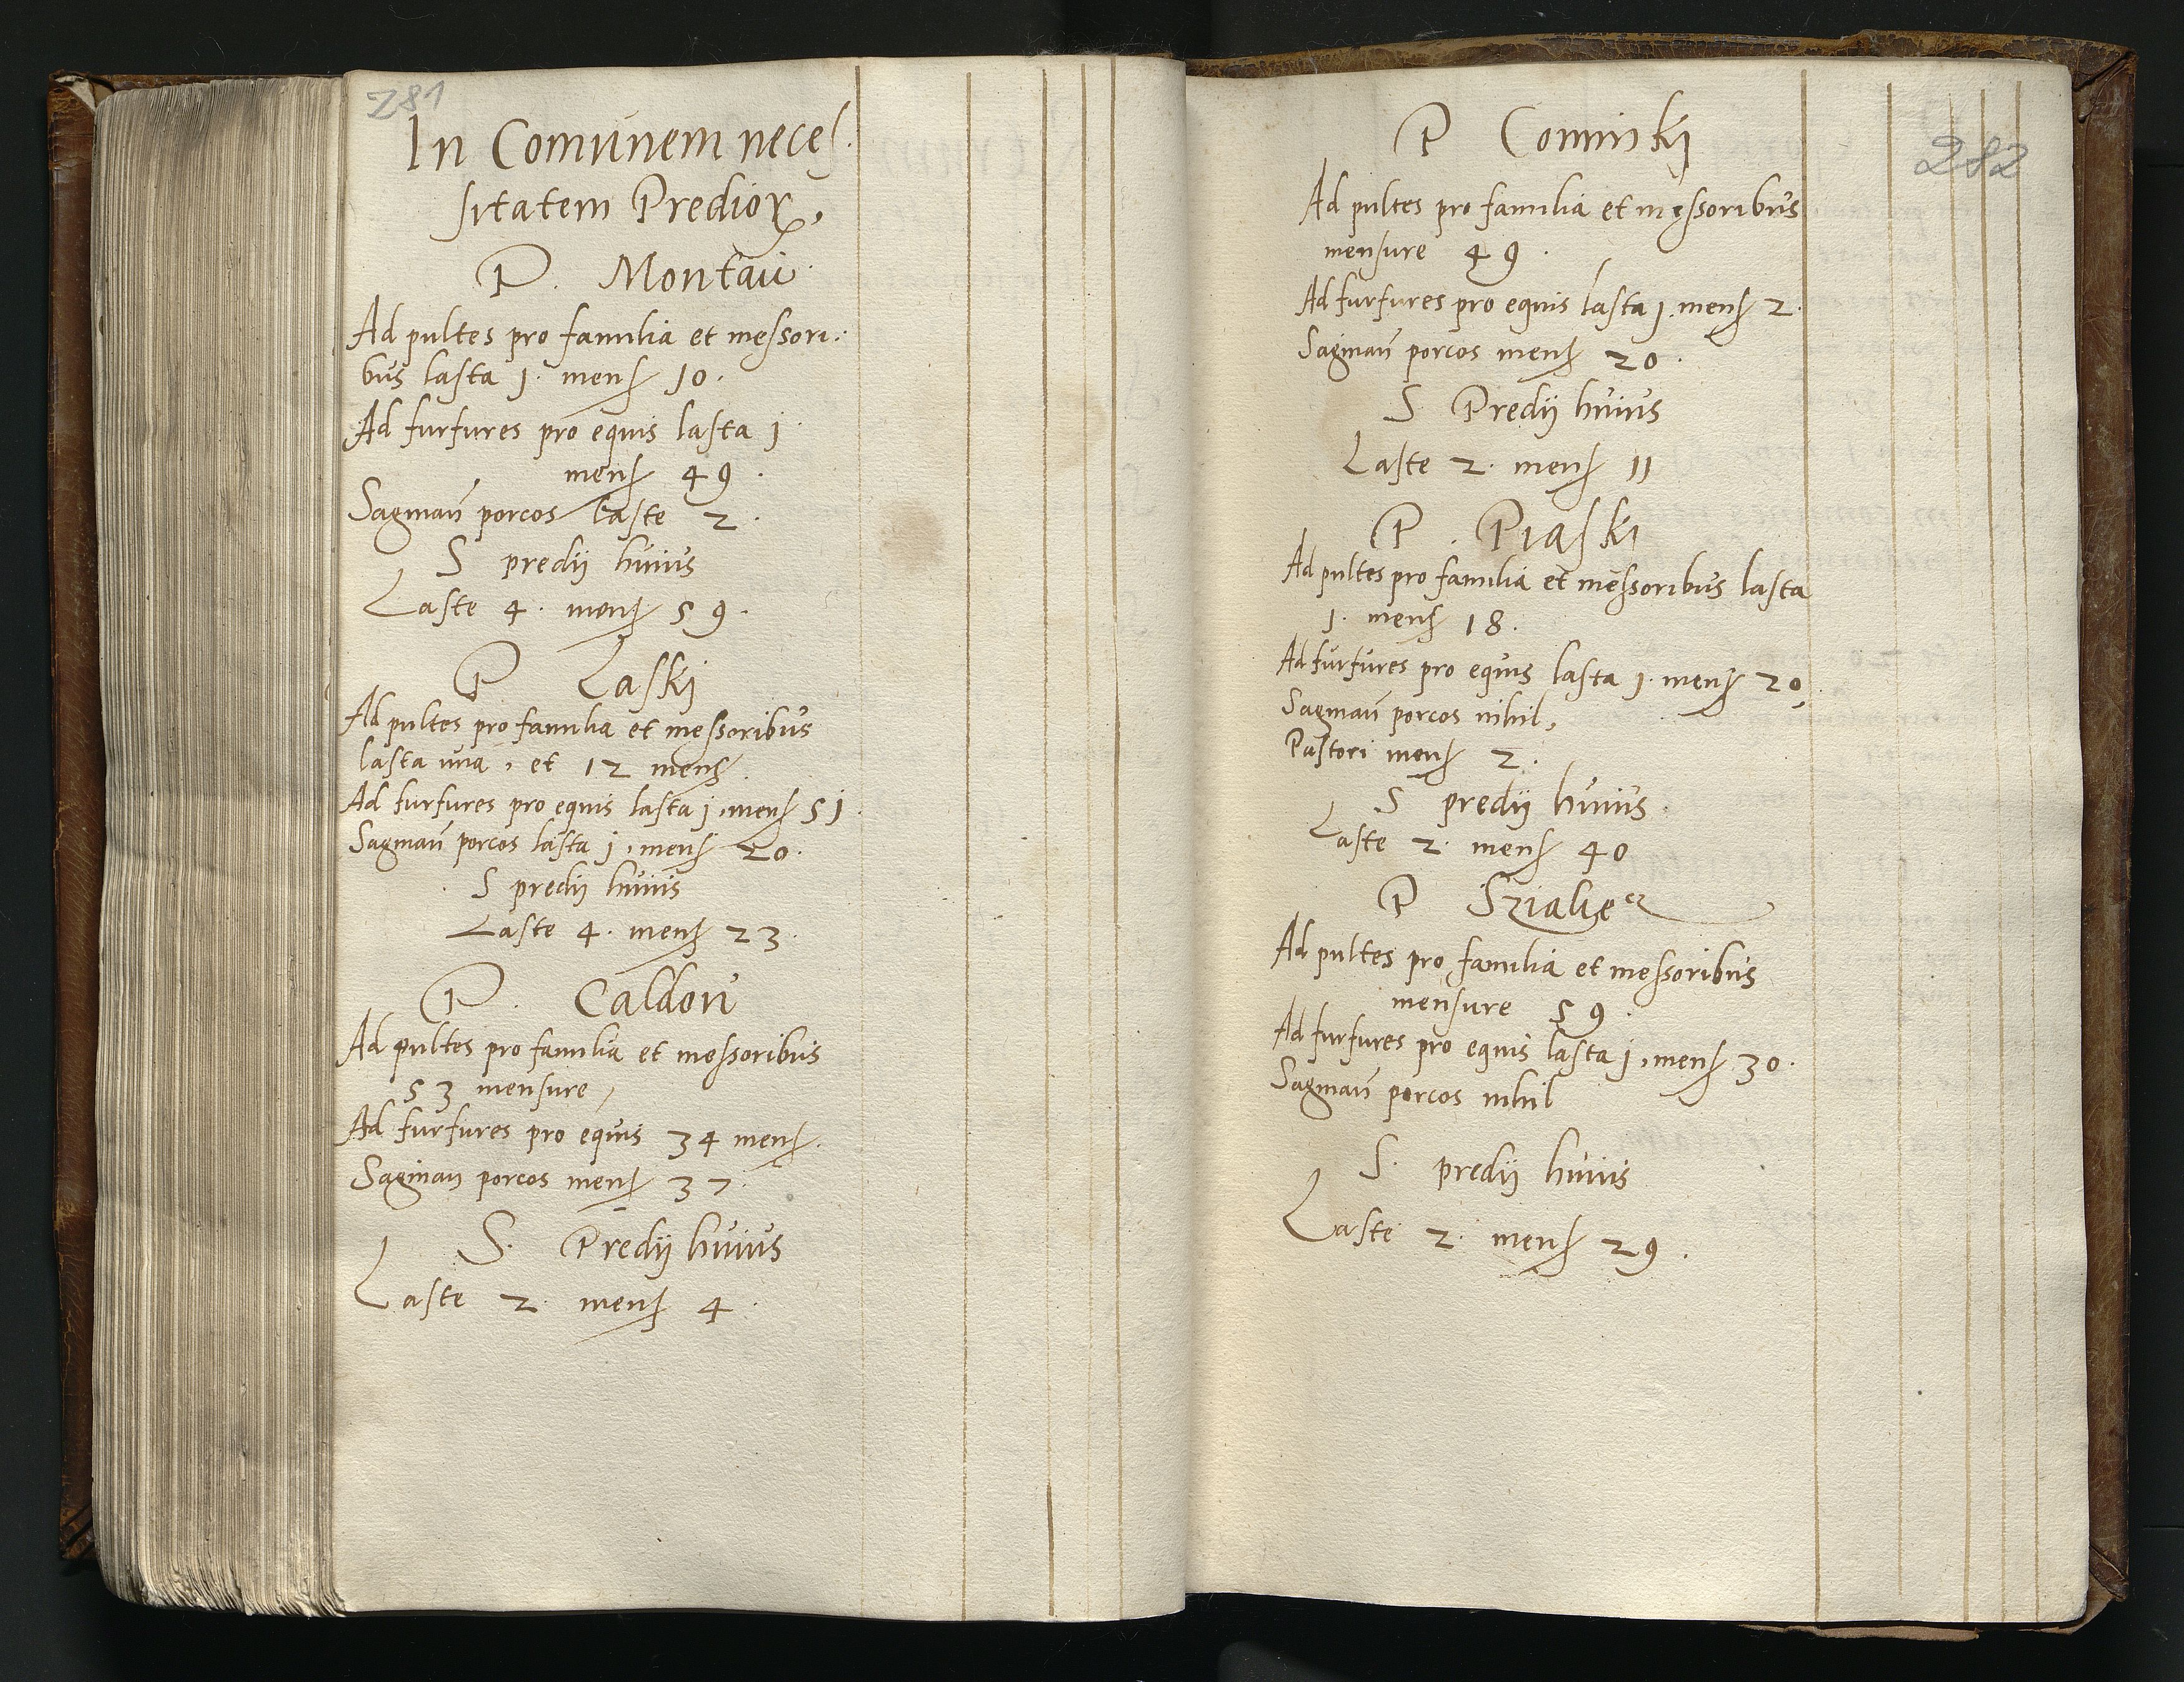 281
In Comunem neces
sitatem Predior,
P. Montaü
Ad pultes pro familia et messori:
bus lasta 1. mens 10.
Ad furfures pro equis lasta j
mens 49.
Saginañ porcos laste 2.
S predij huius
Laste 4. mens 59.
P Laski
Ad pultes pro familia et messoribus
lasta una, et 12 mens
Ad furfures pro equis lasta j, mens 5j.
Saginañ porcos lasta j, mens 20.
S predij huius
Laste 4. mens 23.
P. Caldoñ
Ad pultes pro familia et messoribus
53 mensure,
Ad furfures pro equis 34 mens.
Saginan porcos mens 37.
S. Predij huius
Laste 2. mens 4.
282
P Cominski
Ad pultes pro familia et messoribus
mensure 49.
Ad furfures pro equis lasta j. mens 2.
Saginañ porcos mens 20.
S Predij huius
Laste 2. mens 11
P. Piaski
Ad pultes pro familia et messoribus lasta
1. mens 18.
Ad furfures pro equis lasta j. mens 20,
Saginañ porcos nihil,
Pastori mens 2.
S predij huius.
Laste 2. mens 40
P
Ad pultes pro familia et messoribus
mensure 59.
Ad furfures pro equis lasta j, mens 30.
Saginañ porcos nihil
S. predij huius
Laste 2. mens 29.